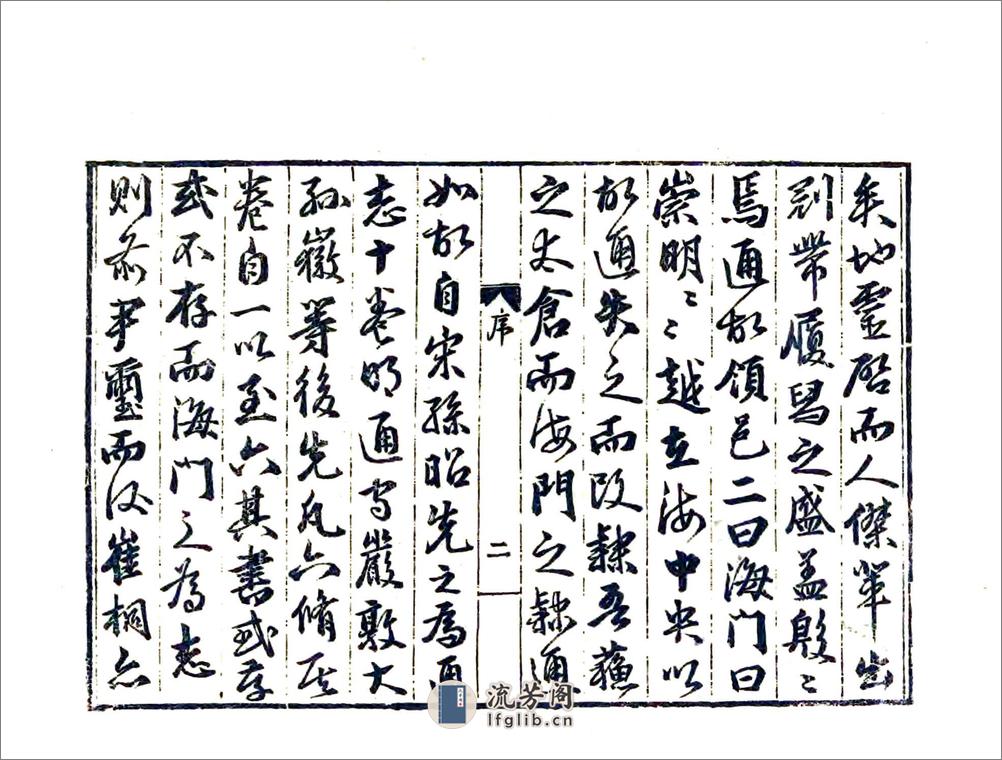 矣地靈啓而人傑輩出
則帶履舄之盛蓋殷〻
焉通故領邑二曰海門曰
崇明〻越在海中央以
故通失之而改隸吾蘇
之太倉而海門之隸通
序
二
如故自宋孫昭先之爲通
志十卷明通守嚴敦大
孫徽等後先凡六脩
卷自一以至六其書或存
或不存而海門之爲志
則前尹璽而後崔桐亦
流芳阁
lfglib.cn